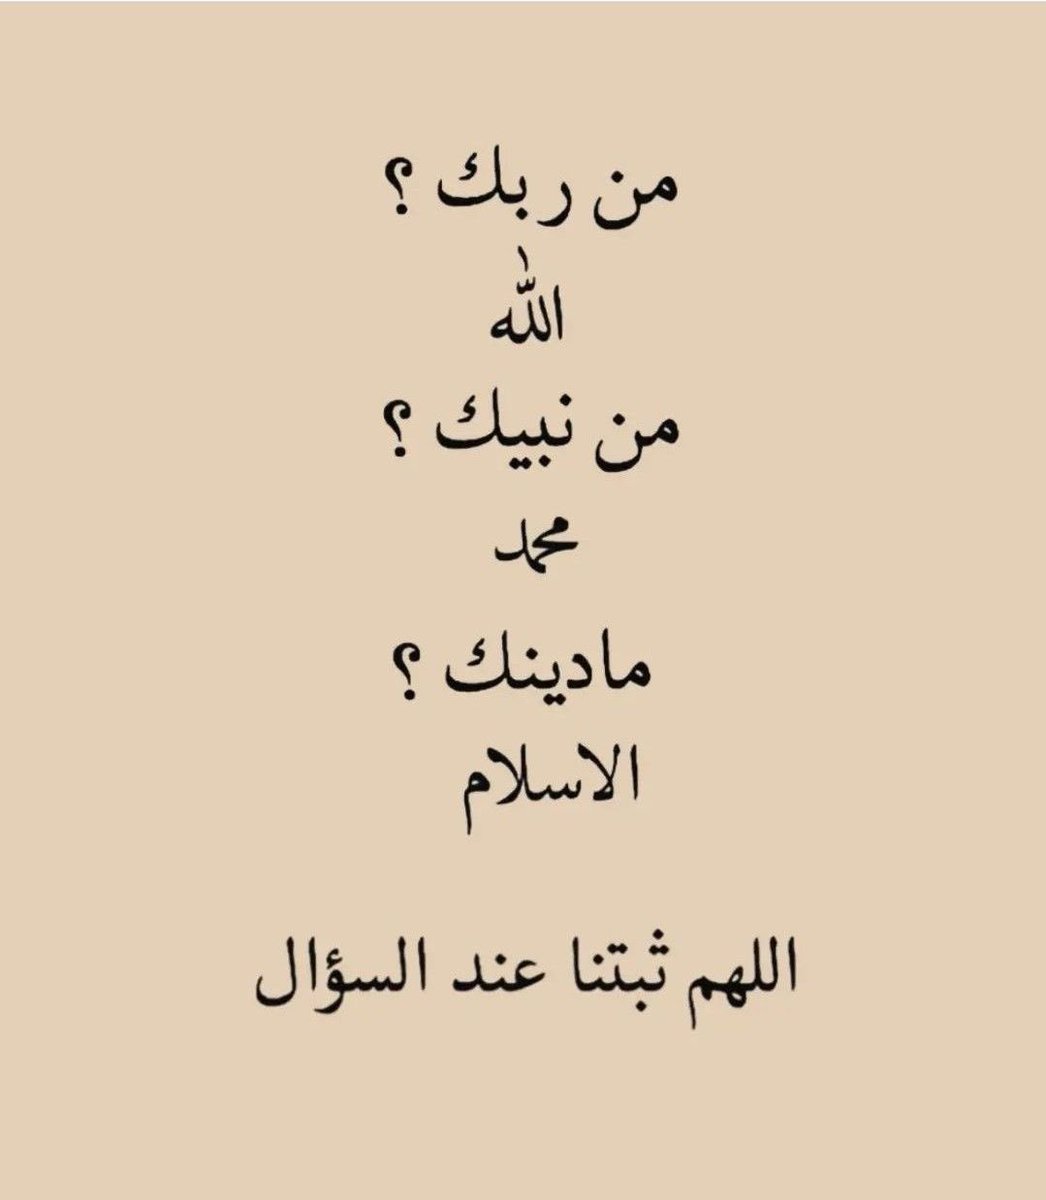 من ربك ؟
الله
من نبيك ؟
محمد
مادينك ؟
الاسلام
اللهم ثبتنا عند السؤال